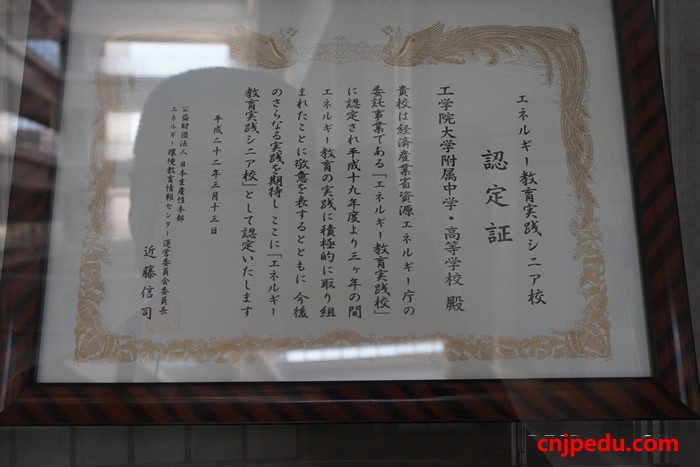 エネルギー教育実践シニア校
認定証
工学院大学附属中学・高等学校 殿
貴校は経済産業省資源エネルギー庁の
委託事業である「エネルギー教育実践校」
に認定され平成十九年度より三ヶ年の間
エネルギー教育の実践に積極的に取り組
まれたことに敬意を表するとともに 今後
のさらなる実践を期待し ここに「エネルギー
教育実践シニア校」として認定いたします
平成二十二年三月十三日
公益財団法人 日本生産性本部
エネルギー環境教育情報センター運営委員会委員長
近藤信司
cnjpedu.com